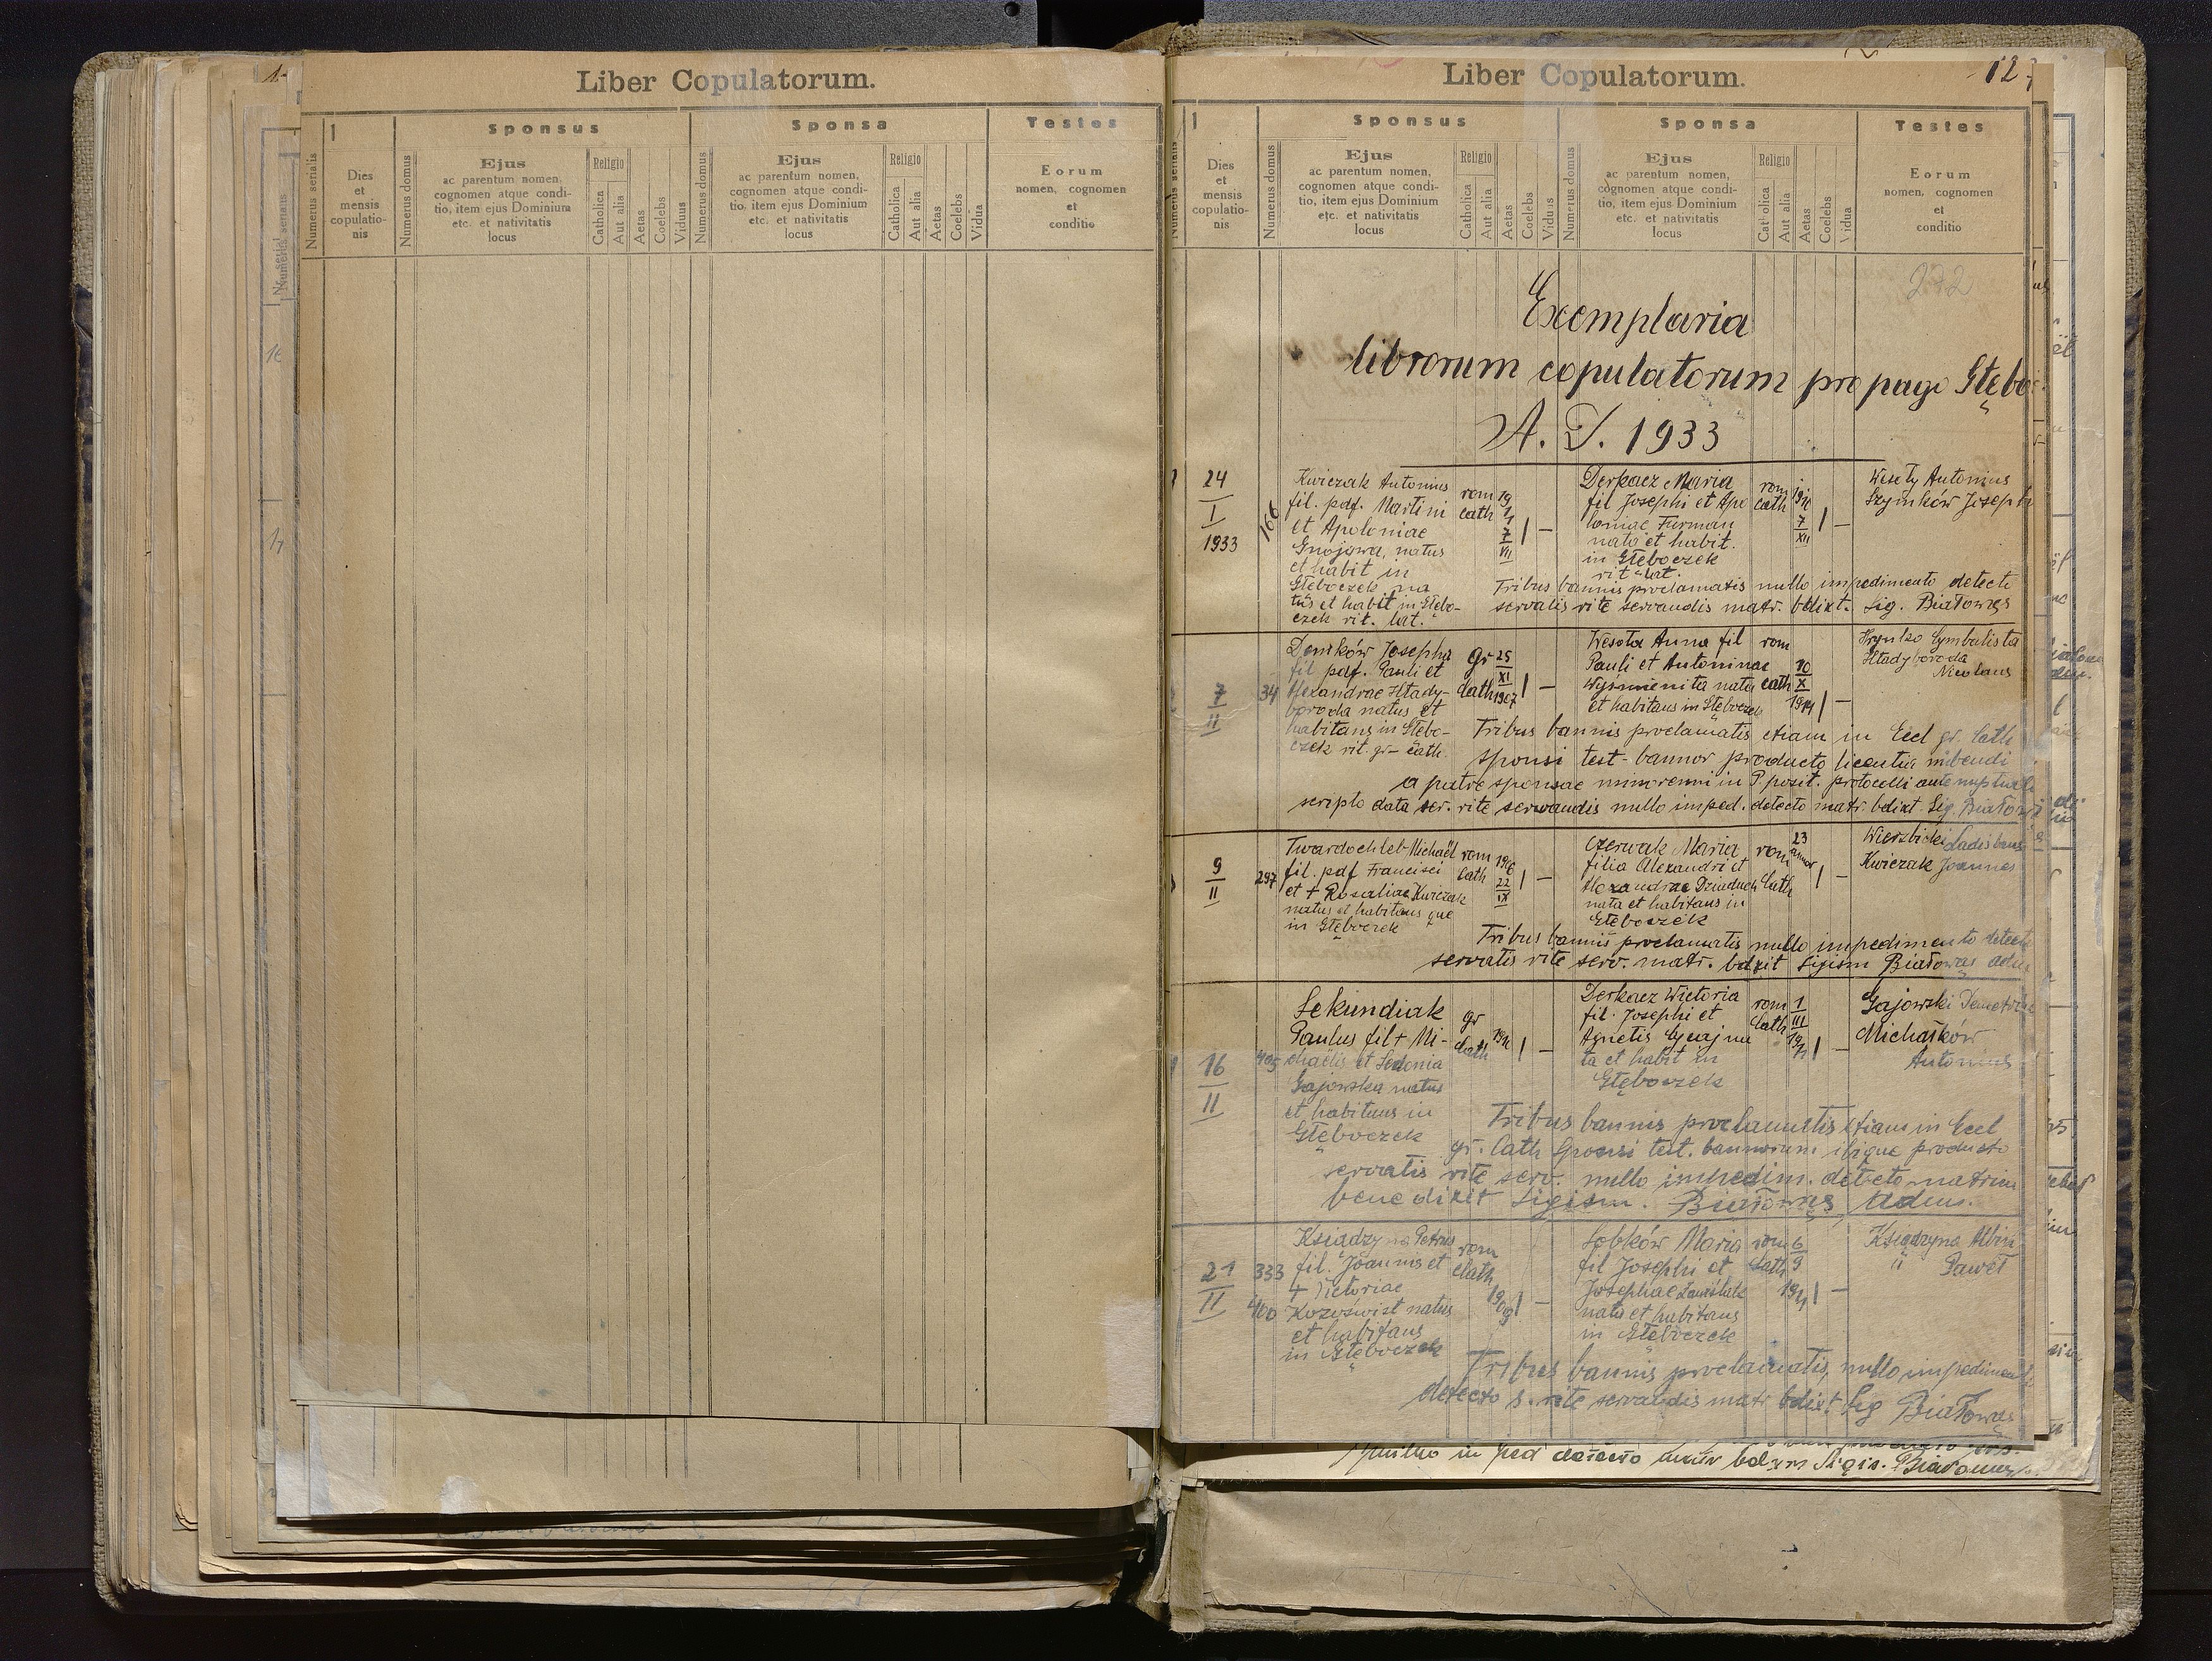 Liber Copulatorum.
1
Numerus serialis
Dies
et
mensis
copulatio-
nis
Numerus domus
Sponsus
Ejus
ac parentum nomen,
cognomen atque condi-
tio, item ejus Dominium
etc. et nativitatis
locus
Religio
Catholica
Aut alia
Aetas
Coelebs
Viduus
Numerus domus
Sponsa
Ejus
ac parentum nomen,
cognomen atque condi-
tio, item ejus Dominium
etc. et nativitatis
locus
Religio
Catholica
Aut alia
Aetas
Coelebs
Vidua
Testes
Eorum
nomen, cognomen
et
conditio
Liber Copulatorum.
127
1
Numerus serialis
Dies
et
mensis
copulatio-
nis
Numerus domus
Sponsus
Ejus
ac parentum nomen,
cognomen atque condi-
tio, item ejus Dominium
etc. et nativitatis
locus
Religio
Catholica
Aut alia
Aetas
Coelebs
Viduus
Numerus domus
Sponsa
Ejus
ac parentum nomen,
cognomen atque condi-
tio, item ejus Dominium
etc. et nativitatis
locus
Religio
Catholica
Aut alia
Aetas
Coelebs
Vidua
Testes
Eorum
nomen, cognomen
et
conditio
272
Exemplaria
librorum copulatorum pro pago Głębo
A. D. 1933
24
I
1933
166
Kwiczak Antonius
fil. pdf. Martini
et Apoloniae
Gnojowa, natus
et habit in
Głęboczek na
tus et habit in Głębo-
czek rit. lat.
rom
cath
7
VII
Derkacz Maria
fil Josephi et Apo
loniae Furman
nata et habit.
in Głęboczek
rit lat.
rom
cath
7
XII
Wesoły Antonius
Szymków Joseph
Tribus bannis proclamatis nullo impedimento detecto
servatis rite servandis matr. bdixt. Sig. Białowąs
7
II
34
Demków Josephus
fil pdf. Pauli et
Alexandrae Hłady-
boroda natus et
habitans in Głębo-
czek rit. gr- cath.
gr
cath
25
XI
1907
Wesoła Anna fil
Pauli et Antoninae
Wyśmienita nata
et habitans in Głęboczek
rom
cath
10
X
1914
Hrynko Cymbalista
Hładyboroda
Nicolaus
Tribus bannis proclamatis etiam in Eccl gr. Cath
sponsi test- bannor producto licentia nubendi
a patre sponsae minorenni in P. posit. protocolli antenuptiali
scripto data ser. rite servandis nullo imped. detecto matr. bdixt Sig. Białowąs
9
II
297
Twardochleb Michaël
fil. pdf Francisci
et + Rosaliae Kwiczak
natus et habitans que
in Głęboczek
rom
cath
1906
22
IX
Czerwak Maria
filia Alexandri et
Alexandrae Dziaduch
nata et habitans in
Głęboczek
rom
Cath
23
annor
Wierzbicki Ladislaus
Kwiczak Joannes
Tribus bannis proclamatis nullo impedimento detecto
servatis rite serv. matr. bdxit Sigism Białowąs adm
16
II
405
Sekundiak
Paulus fil + Mi-
chaelis et Sedonia
Gajowska natus
et habitans in
Głęboczek
gr
Cath
Derkacz Wictoria
fil. Josephi et
Agnetis Cycaj na
ta et habit in
Głęboczek
rom
Cath
1
III
Gajowski Demetrius
Michałków
Antonius
Tribus bannis proclamatis etiam in Eccl
gr. Cath Sponsi test. bannorum ibique producto
servatis rite serv. nullo impedim. detecto matrim
benedixit Sigism. Białowąs Adm.
21
II
333
400
Ksiądzyna Petrus
fil. Joannis et
+ Victoriae
Kozoświst natus
et habitans
in Głęboczek
rom
Cath
1909
Sobków Maria
fil Josephi et
Josephae Ławiślak
nata et habitans
in Głęboczek
rom
Cath
6
9
Ksiądzyna Albin
" Paweł
Tribus bannis proclamatis, nullo impediment
detecto s. rite servandis matr bdixt Sig Białowąs